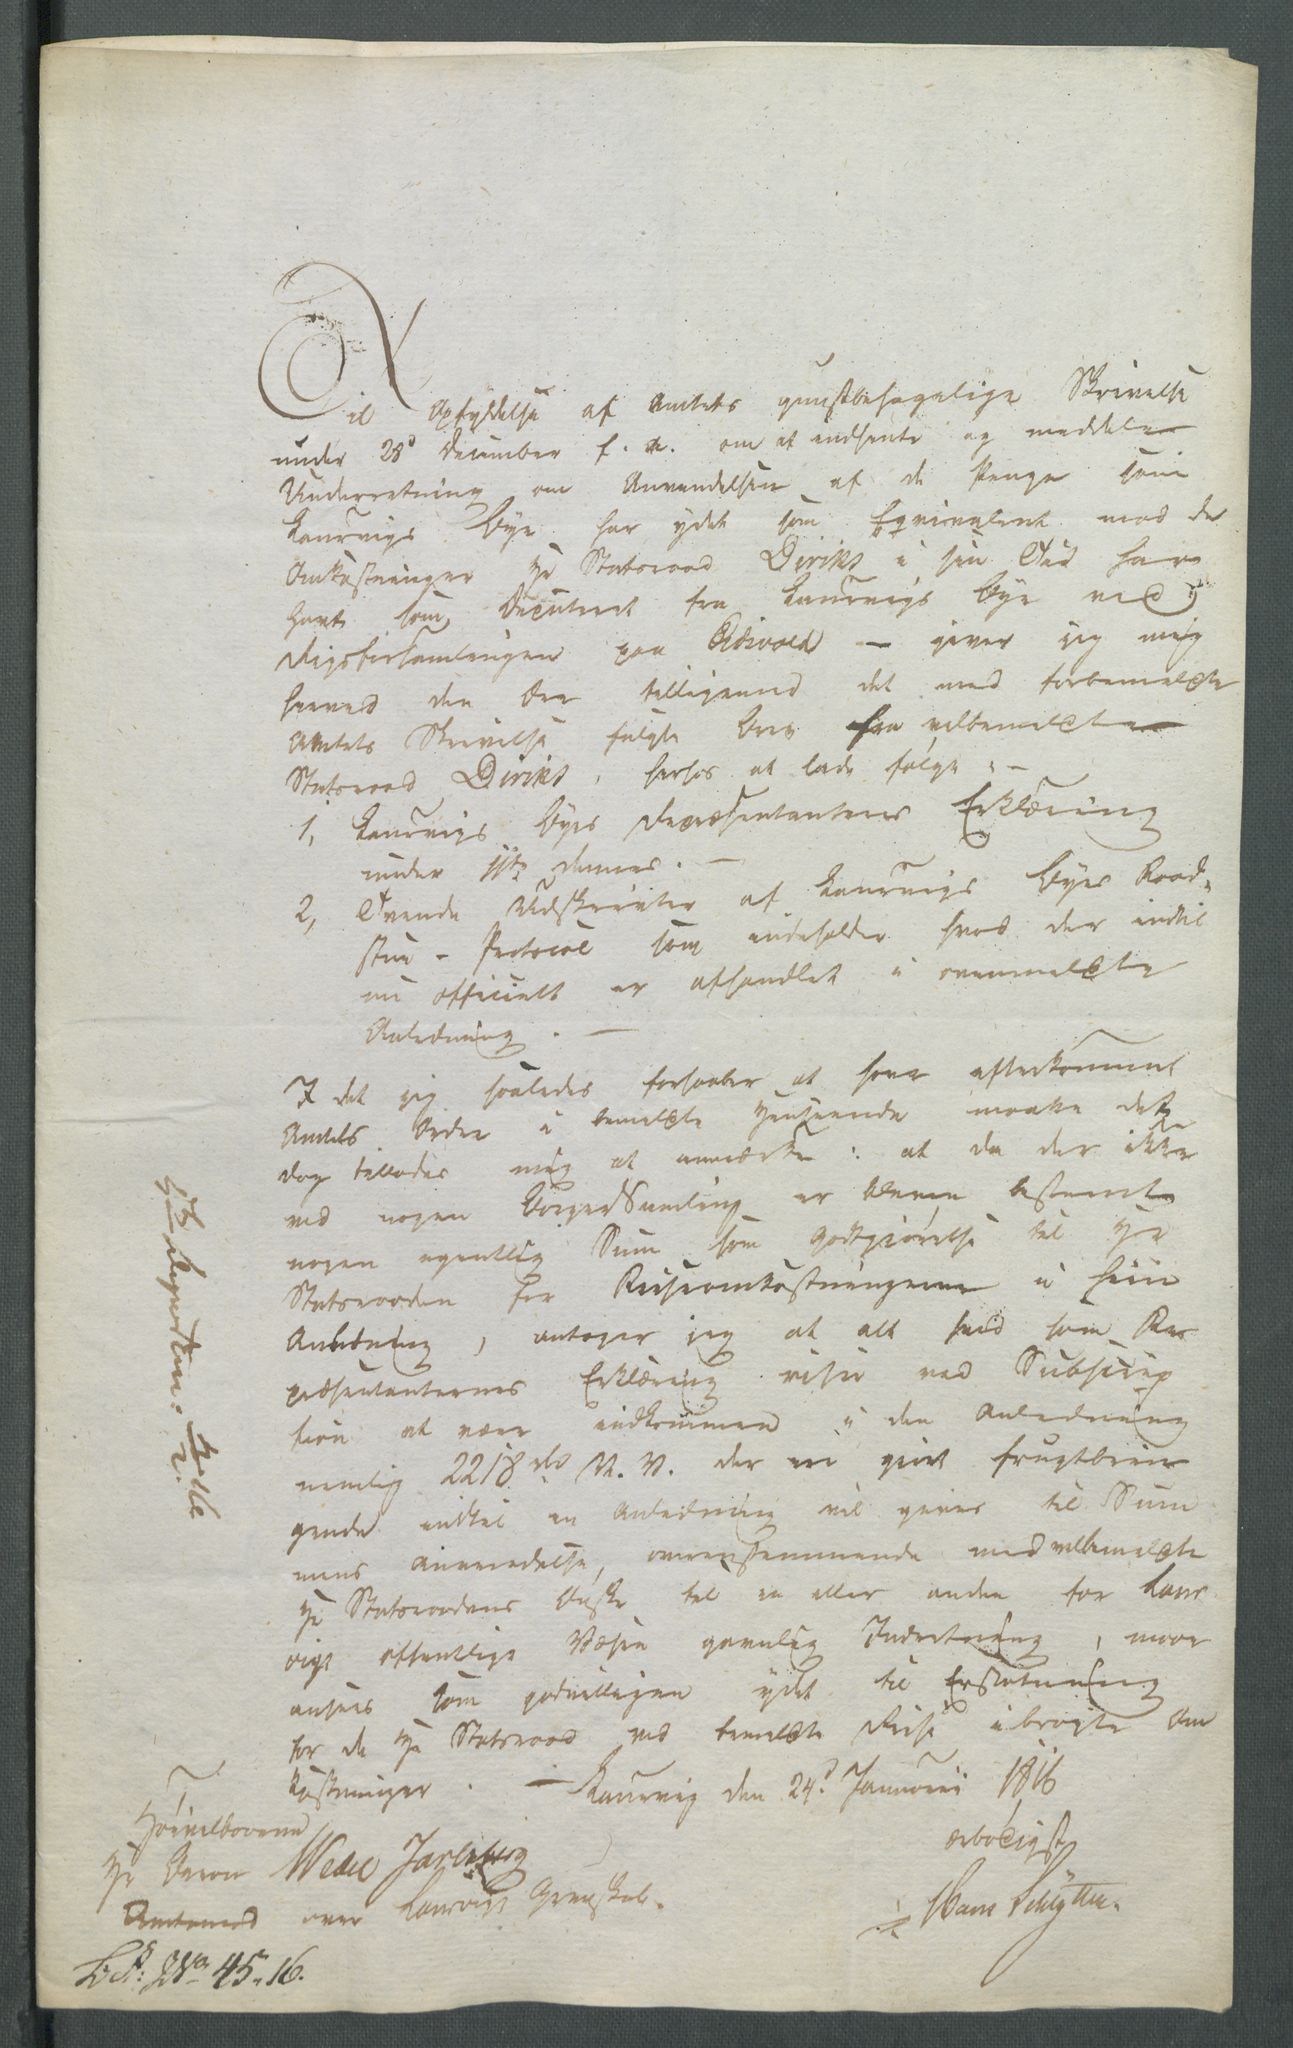 Til Opfyldelse af Amtets gunstbehagelige Skrivelse
under 28d December f. A. om at indhente og meddele
Underretning om Anvendelsen af de Penge som
Laurvigs Bye har ydet som Eqvivalent mod de
Omkostninger Hr Statsraad Diriks i sin Tid har
havt som Deputeret fra Laurvigs Bye ved
Rigsforsamlingen paa Eidsvold — giver jeg mig
herved den Ære tilligemed det med forbemeldte
Amtets Skrivelse fulgte Brev fra velbemeldte
Statsraad Diriks, herhos at lade følge: —
1, Laurvigs Byes Repræsentanters Erklæring
under 11te dennes. —
2, Tvende Udskrivter af Laurvigs Byes Raad-
stue-Protocol som indeholder hvad der indtil
nu officielt er afhandlet i ovenmeldte
Anledning. —
I det jeg saaledes forhaaber at have efterkommet
Amtets Ordre i bemeldte Henseende maatte det
dog tillades mig at anmærke: at da der ikke
ved nogen Borger Samling er bleven bestemt
nogen egentlig Sum som Godtgiørelse til Hr
Statsraaden for Reiseomkostningerne i
Anledning, antager jeg at alt hvad som Re
præsentanternes Erklæring viser ved Subscrip
tion at være indkommen i den Anledning
nemlig 2218 rbd N. V. der er giort frugtbrin
gende indtil en Anledning vil gives til Sum
mens Anvendelse, overensstemmende med velbemeldte
Hr Statsraadens Ønske til en eller anden for Laur
vigs offentlige Væsen gavnlig Indretning, maae
ansees som godvilligen ydet til Erstatning
for de Hr Statsraad ved bemeldte Reise
kostninger. — Laurvig den 24d Januarii 1816
ærbødigst
Høivelbaarne
Hr Baron Wedel Jarlsberg
Amtmand over Laurvigs Grevskab.
Hans Schytter.
45. 16.